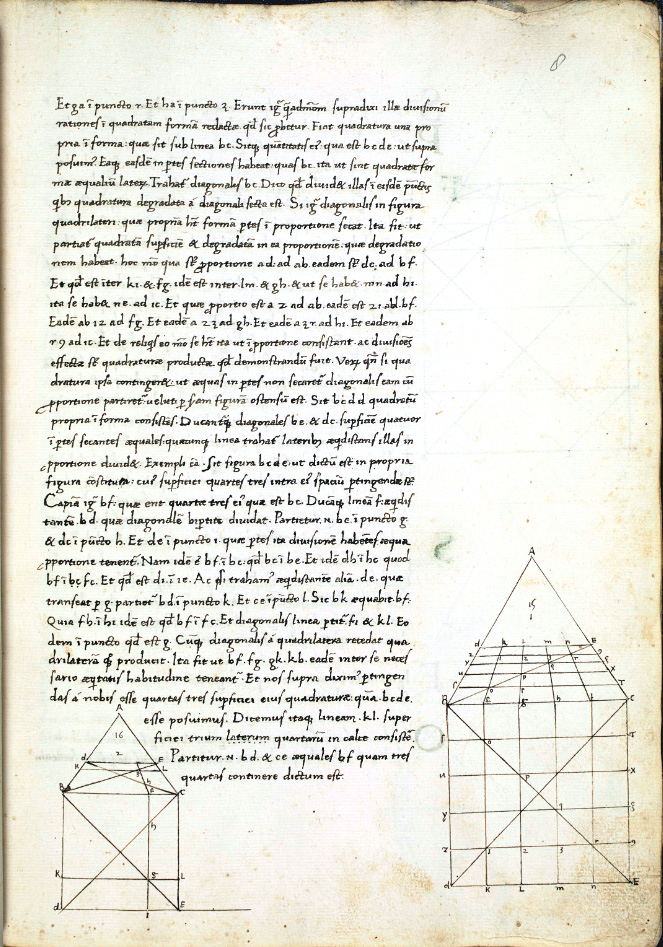 8
Et ga ĩ puncto r. Et ha ĩ puncto 2. Erunt igr̃ q̃admõm supradixi illæ diuisionũ
rationes ĩ quadratam formã redactæ qđ sic ꝓbetur. Fiat quadratura una pro
pria ĩ forma: quæ sit sub linea bc. Sitq; quãtitatis ei' qua est bcde. ut supra
posuim'. Eaq; easdẽ in ptes sectiones habeat: quas bc. ita ut sint quadratæ for
mæ æqualiũ Trahat' diagonalis bc. Dico qđ diuid& illas ĩ eisdẽ pũctis
qb; quadratura degradata á diagonali secta est. Si igr̃ diagonalis in figura
quadrilateri: quæ propriã h̃t formã ptes ĩ proportione secat. Ita fit ut
partiat' quadratã supficiẽ & degradatã in ea proportione: quæ degradatio
nem habeat. hoc mõ qua proportione ad: ad ab. eadem dc. ad bf.
Et qđ est ĩter ki. & fg. idẽ est inter lm. & gh. & ut se hab& mn ad hi.
ita se hab& ne. ad ic. Et quæ ꝓportio est a 2 ad ab. eadẽ est 21 ad bf.
Eadẽ ab 12 ad fg. Et eadẽ a 23 ad gh. Et eadẽ a 3r. ad hi. Et eadem ab
r 9 ad ic. Et de reliqs eo mõ se h̃t ita ut ĩ ꝓportione consistant. ac diuisiões
effectæ quadraturæ productæ qđ demonstrandũ fuit. Verũ qñ si qua
dratura ipsa conting& ut æquas in ptes non secaret' diagonalis eam cũ
ꝓportione partiret': ueluti p figurã ostensũ est. Sit bcdd quadretũ
propria ĩ forma consistẽs. Ducantq; diagonales be. & dc. supficiẽ quatuor
ĩ ptes secantes æquales: quæcunq; linea trahat' laterib; æqdistans illas in
ꝓportione diuid&. Exempli cã. Sit figura bcde. ut dictũ est in propria
figura cõstituta: cui' supficiei quartes tres intra ei' spaciũ ptingendæ
Capiã igr̃ bf: quæ erit quartæ tres ei' quæ est bc. Ducãq; lineã f: æqdis
tantẽ bd. quæ diagonalẽ bipertite diuidat. Partietur .n. be. ĩ puncto g.
& dc ĩ pũcto h. Et de ĩ puncto i. quæ ptes ita diuisionẽ habẽtes æqua
ꝓportione tenent. Nam idẽ ẽ bf ĩ bc. qđ bc ĩ be. Et idẽ dh ĩ hc quod
bf ĩ bc fc. Et qđ est di. ĩ ie. Ac si traham' æqdistante alia .de. quæ
transeat p g. partiet' bd. ĩ puncto k. Et ce ĩ pũcto l. Sic bk æquabit. bf.
Quia fh. ĩ hi idẽ est qđ bf ĩ fc. Et diagonalis linea ptit' fi & kl. Eo
dem ĩ puncto qđ est g. Cũq; diagonalis á quadrilatera recedat qua
drilaterã q̃ producit. Ita fit ut bf. fg. gk. kb. eadẽ inter se neces
sario æqtatis habitudine teneant. Et nos supra dixim' ptingen
das á nobis esse quartas tres supficiei eius quadraturæ: quã. bcde.
esse posuimus. Dicemus itaq; lineam .kl. super
ficiei trium laterum quartarũ in calce consistẽ.
Partitur .n. bd. & ce æquales bf quam tres
quartas continere dictum est.
A
16
2
d E
B C
h
K g L
d i E
A
15
1
d k L m n E
B f g h i C
T
u X
y S
z 9
1 2 3 r
d K L m n E